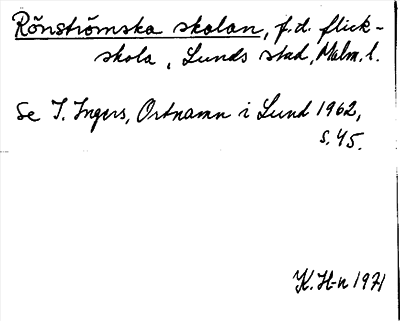 Rönströmska skolan, f.d. flick-
skola, Lunds stad, Malm. l.
Se I. Ingers, Ortnamn i Lund 1962,
s. 45.
K. H-n 1971